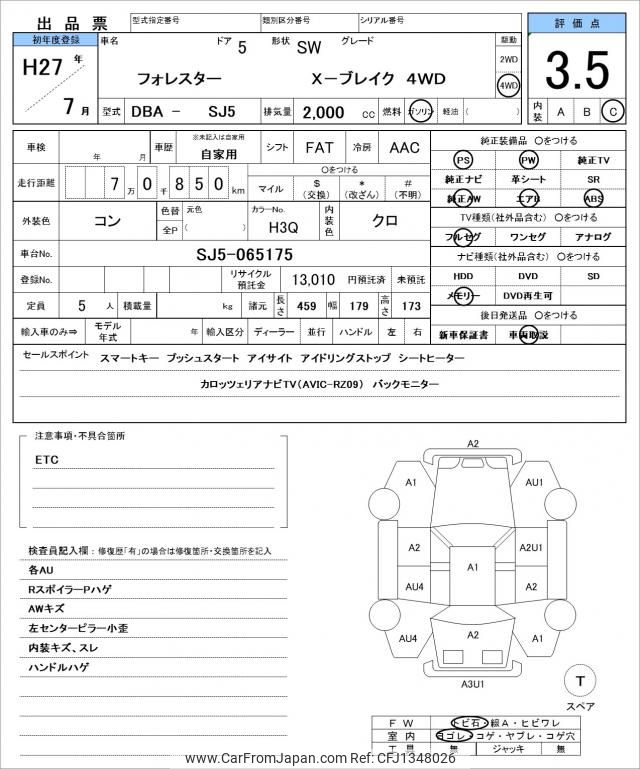 出品票
型式指定番号
類別区分番号
シリアル番号
評価点
3.5
内装 A B C
初年度登録
H27 年
7 月
車名 ドア 5 形状 SW グレード
フォレスター X－ブレイク 4WD
駆動
2WD
4WD
型式 DBA － SJ5 排気量 2,000 cc 燃料 ガソリン 軽油 ( )
車検 年 月 車歴 ※未記入は自家用
自家用
シフト FAT 冷房 AAC
走行距離 7 万 0 千 8 5 0 km
○をつける
マイル $ (交換) * (改ざん) # (不明)
外装色 コン 色替 全P 元色 ( ) カラーNo. H3Q 内装色 クロ
車台No. SJ5-065175
登録No. リサイクル預託金 13,010 円預託済 未預託
定員 5 人 積載量 kg 諸元 長さ 459 幅 179 高さ 173
輸入車のみ⇒ モデル年式 年 輸入区分 ディーラー 並行 ハンドル 左 右
純正装備品 ○をつける
PS PW 純正TV
純正ナビ 革シート SR
純正AW エアB ABS
TV種類(社外品含む) ○をつける
フルセグ ワンセグ アナログ
ナビ種類(社外品含む) ○をつける
HDD DVD SD
メモリー DVD再生可
後日発送品 ○をつける
新車保証書 車両取説
セールスポイント スマートキー プッシュスタート アイサイト アイドリングストップ シートヒーター
カロッツェリアナビTV(AVIC-RZ09) バックモニター
注意事項・不具合箇所
ETC
検査員記入欄：修復歴「有」の場合は修復箇所・交換箇所を記入
各AU
RスポイラーPハゲ
AWキズ
左センターピラー小歪
内装キズ、スレ
ハンドルハゲ
A2
A1
AU1
A2
A1
A2U1
AU4
A2
AU4
A2
A1
A3U1
T
スペア
FW トビ石・線A・ヒビワレ
室内 ヨゴレ・コゲ・ヤブレ・コゲ穴
工具 無 ジャッキ 無
www.CarFromJapan.com Ref: CFJ1348026